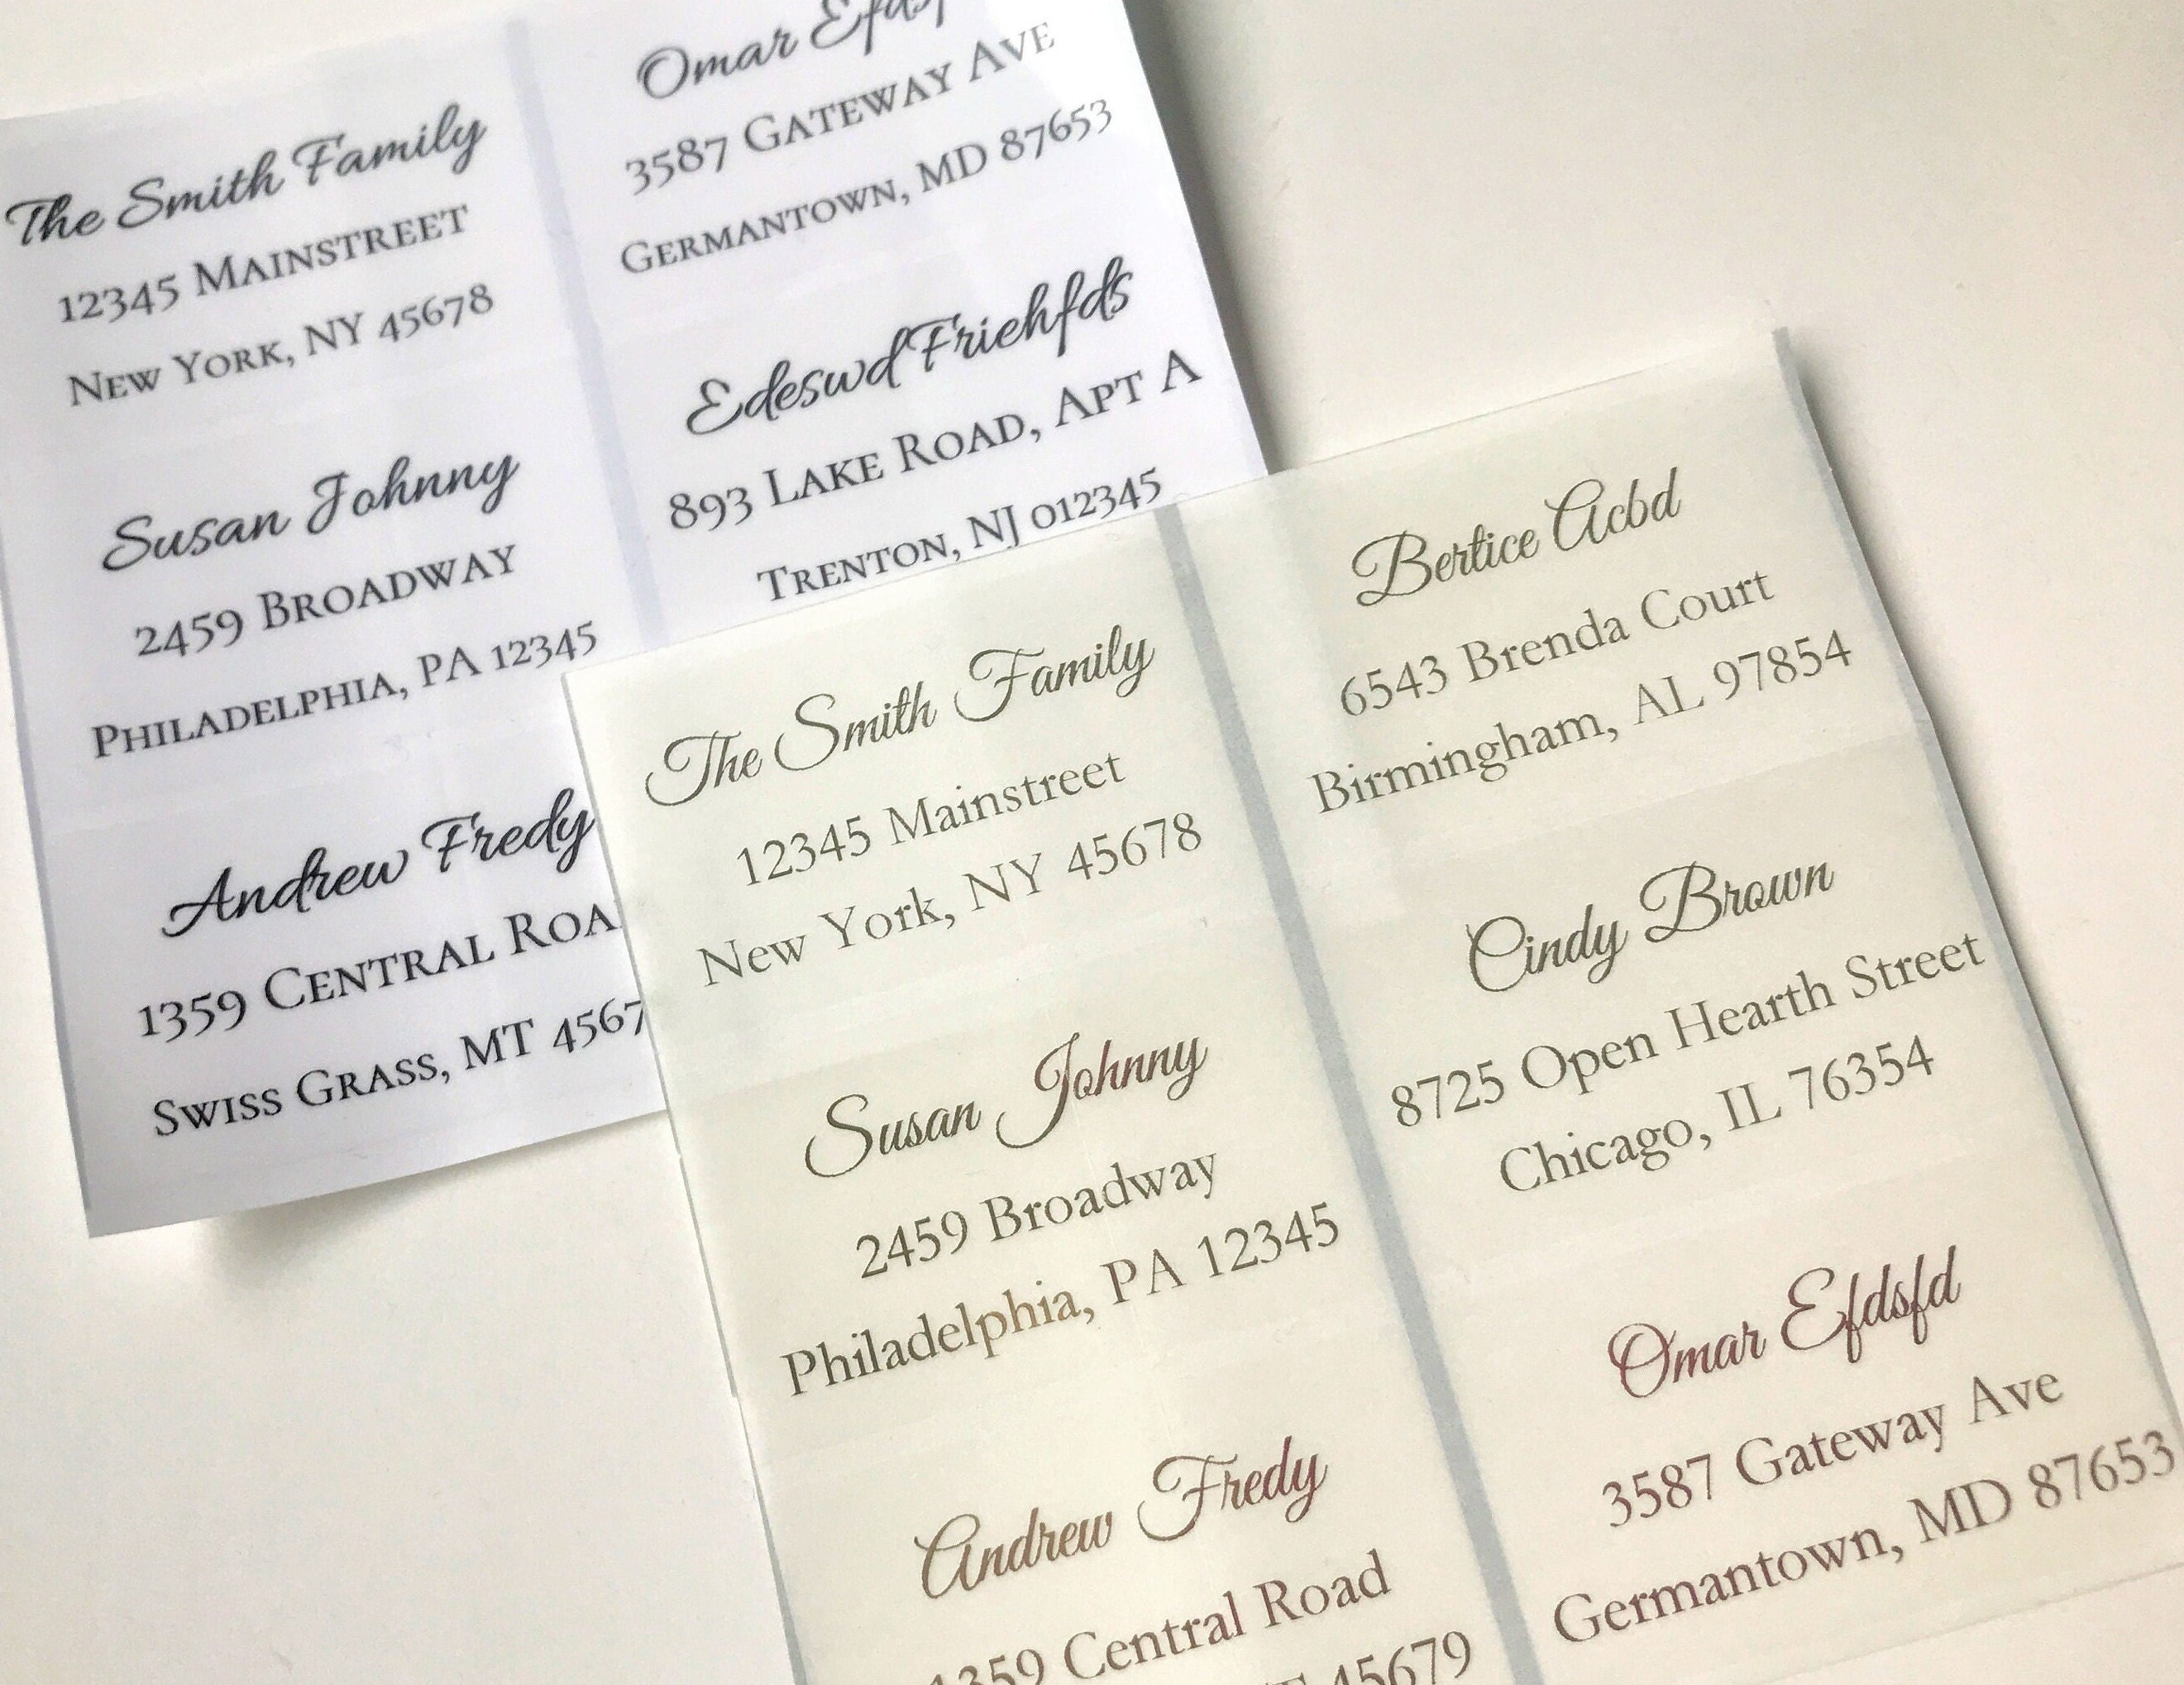 The Smith Family
12345 Mainstreet
New York, NY 45678
Susan Johnny
2459 Broadway
Philadelphia, PA 12345
Andrew Fredy
1359 Central Roa
Swiss Grass, MT 4567
Omar
3587 Gateway Ave
Germantown, MD 87653
Edeswd Friehfds
893 Lake Road, Apt A
Trenton, NJ 012345
The Smith Family
12345 Mainstreet
New York, NY 45678
Susan Johnny
2459 Broadway
Philadelphia, PA 12345
Andrew Fredy
1359 Central Road
45679
Bertice Acbd
6543 Brenda Court
Birmingham, AL 97854
Cindy Brown
8725 Open Hearth Street
Chicago, IL 76354
Omar Efdsfd
3587 Gateway Ave
Germantown, MD 87653